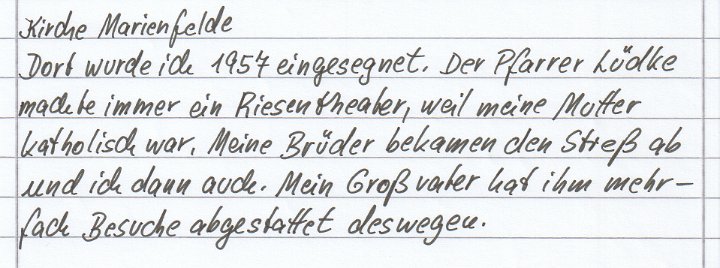 Kirche Marienfelde
Dort wurde ich 1957 eingesegnet. Der Pfarrer Lüdke
machte immer ein Riesentheater, weil meine Mutter
katholisch war. Meine Brüder bekamen den Streß ab
und ich dann auch. Mein Großvater hat ihm mehr-
fach Besuche abgestattet deswegen.